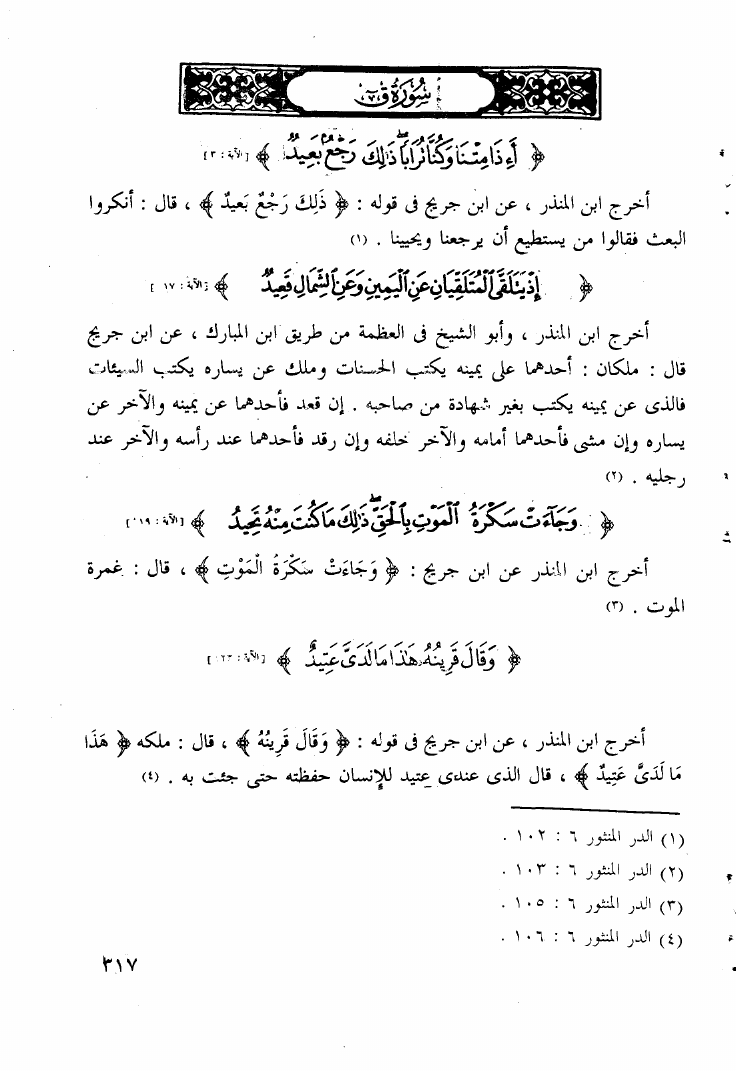 سُورَةُ ق
﴿ أَءِذَا مِتْنَا وَكُنَّا تُرَابًا ذَٰلِكَ رَجْعٌ بَعِيدٌ ﴾ [الآية : ٣]
أخرج ابن المنذر ، عن ابن جريج فى قوله : ﴿ ذَلِكَ رَجْعٌ بَعيدٌ ﴾ ، قال : أنكروا
البعث فقالوا من يستطيع أن يرجعنا ويحيينا . (١)
﴿ إِذْ يَتَلَقَّى الْمُتَلَقِّيَانِ عَنِ الْيَمِينِ وَعَنِ الشِّمَالِ قَعِيدٌ ﴾ [الآية : ١٧]
أخرج ابن المنذر ، وأبو الشيخ فى العظمة من طريق ابن المبارك ، عن ابن جريج
قال : ملكان : أحدهما على يمينه يكتب الحسنات وملك عن يساره يكتب السيئات
فالذى عن يمينه يكتب بغير شهادة من صاحبه . إن قعد فأحدهما عن يمينه والآخر عن
يساره وإن مشى فأحدهما أمامه والآخر خلفه وإن رقد فأحدهما عند رأسه والآخر عند
رجليه . (٢)
﴿ وَجَاءَتْ سَكْرَةُ الْمَوْتِ بِالْحَقِّ ذَٰلِكَ مَا كُنْتَ مِنْهُ تَحِيدُ ﴾ [الآية : ١٩]
أخرج ابن المنذر عن ابن جريج : ﴿ وَجَاءَتْ سَكْرَةُ الْمَوْتِ ﴾ ، قال : غمرة
الموت . (٣)
﴿ وَقَالَ قَرِينُهُ هَٰذَا مَا لَدَىَّ عَتِيدٌ ﴾ [الآية : ٢٣]
أخرج ابن المنذر ، عن ابن جريج فى قوله : ﴿ وَقَالَ قَرِينُهُ ﴾ ، قال : ملكه ﴿ هَذَا
مَا لَدَىَّ عَتِيدٌ ﴾ ، قال الذى عندى عتيد للإنسان حفظته حتى جئت به . (٤)
(١) الدر المنثور ٦ : ١٠٢ .
(٢) الدر المنثور ٦ : ١٠٣ .
(٣) الدر المنثور ٦ : ١٠٥ .
(٤) الدر المنثور ٦ : ١٠٦ .
٣١٧